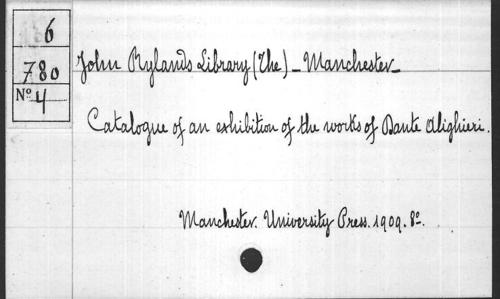 6
780
Nº 4
John Rylands Library (The) _ Manchester _
Catalogue of an exhibition of the works of Dante Alighieri.
Manchester. University Press. 1909. 8º.